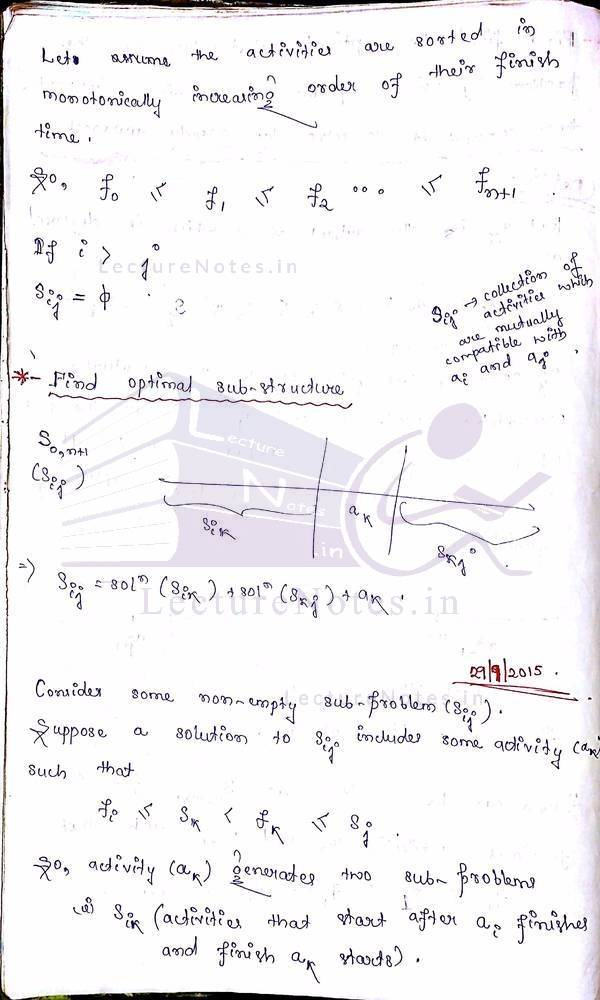 Lets assume the activities are sorted in
monotonically increasing order of their finish
time.
So, f0 ≤ f1 ≤ f2 ... ≤ fn+1 .
If i > j
LectureNotes.in
Sij = ϕ
Sij → collection of
activities which
are mutually
compatible with
ai and aj .
*- Find optimal sub-structure
S0,n+1
(Sij)
Lecture
Notes
.in
Sik
ak
Skj
=) Sij = solⁿ (Sik) + solⁿ (Skj) + ak .
LectureNotes.in
29/9/2015 .
LectureNotes.in
Consider some non-empty sub-problem (Sij).
Suppose a solution to Sij includes some activity (ak)
such that
fi ≤ Sk < fk ≤ Sj .
So, activity (ak) generates two sub-problems
i) Sik (activities that start after ai finishes
and finish ak starts) .